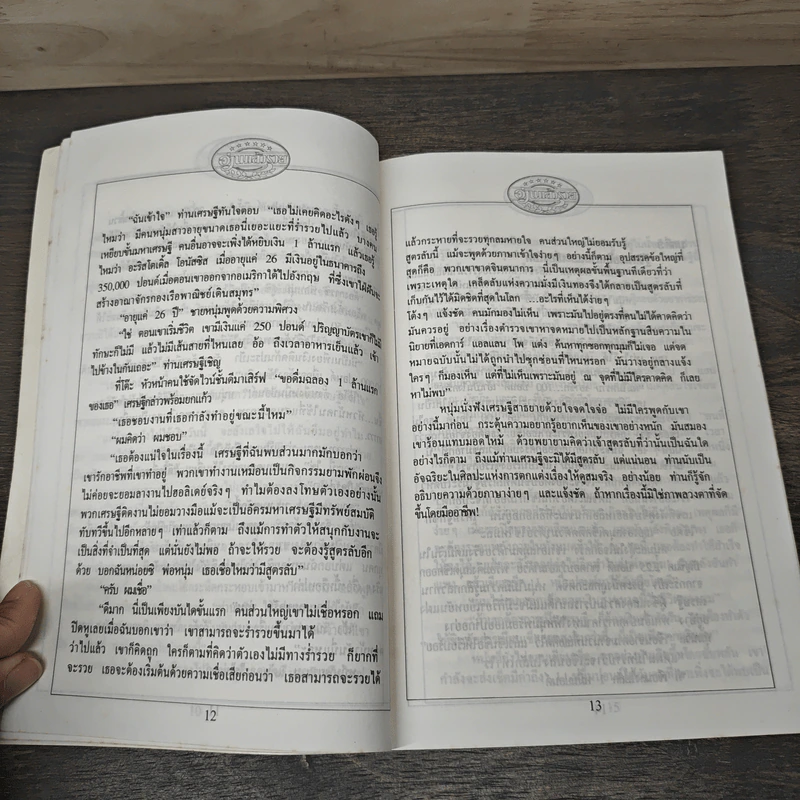 "ฉันเข้าใจ" ท่านเศรษฐีทันใดตอบ "เธอไม่เคยคิดอะไรดังๆ เธอรู้
ไหมว่า มีคนหนุ่มสาวอายุขนาดเธอนี่เยอะแยะที่ร่ำรวยไปแล้ว บางคน
เหยียบชั้นมหาเศรษฐี คนอื่นอาจจะเพิ่งได้หยิบเงิน 1 ล้านแรก แล้วเธอรู้
ไหมว่า อะริสโตเติ้ล โอนัสซิส เมื่ออายุแค่ 26 มีเงินอยู่ในธนาคารถึง
350,000 ปอนด์เมื่อตอนเขาออกจากอเมริกาใต้ไปอังกฤษ ที่ซึ่งเขาใฝ่ฝันจะ
สร้างอาณาจักรกองเรือพาณิชย์เดินสมุทร"
"อายุแค่ 26 ปี" ชายหนุ่มพูดด้วยความพิศวง
"ใช่ ตอนเขาเริ่มชีวิต เขามีเงินแค่ 250 ปอนด์ ปริญญาบัตรเขาก็ไม่มี
ทักษะก็ไม่มี แล้วไม่มีเส้นสายที่ไหนเลย อ้อ ถึงเวลาอาหารเย็นแล้ว เข้า
ไปข้างในกันเถอะ" ท่านเศรษฐีเชิญ
ที่โต๊ะ หัวหน้าคนใช้จัดไวน์ชั้นดีมาเสิร์ฟ "ขอดื่มฉลอง 1 ล้านแรก
ของเธอ" เศรษฐีกล่าวพร้อมยกแก้ว
"เธอชอบงานที่เธอกำลังทำอยู่ขณะนี้ไหม"
"ผมคิดว่า ผมชอบ"
"เธอต้องแน่ใจในเรื่องนี้ เศรษฐีที่ฉันพบส่วนมากมักบอกว่า
เขารักอาชีพที่เขาทำอยู่ พวกเขาทำงานเหมือนเป็นกิจกรรมยามพักผ่อนจึง
ไม่ค่อยจะยอมลางานไปฮอลิเดย์จริงๆ ทำไมต้องลงโทษตัวเองอย่างนั้น
พวกเศรษฐีคิดงานไม่ยอมวางมือแม้จะเป็นอัครมหาเศรษฐีมีทรัพย์สมบัติ
ทับทวีขึ้นไปอีกหลายๆ เท่าแล้วก็ตาม ถึงแม้การทำตัวให้สนุกกับงานจะ
เป็นสิ่งที่จำเป็นที่สุด แต่นั่นยังไม่พอ ถ้าจะให้รวย จะต้องรู้สูตรลับอีก
ด้วย บอกฉันหน่อยซิ พ่อหนุ่ม เธอเชื่อไหมว่ามีสูตรลับ"
"ครับ ผมเชื่อ"
"ดีมาก นี่เป็นเพียงบันไดขั้นแรก คนส่วนใหญ่เขาไม่เชื่อหรอก แถม
ปิดหูเลยเมื่อฉันบอกเขาว่า เขาสามารถจะร่ำรวยขึ้นมาได้
ว่าไปแล้ว เขาก็คิดถูก ใครก็ตามที่คิดว่าตัวเองไม่มีทางร่ำรวย ก็ยากที่
จะรวย เธอจะต้องเริ่มต้นด้วยความเชื่อเสียก่อนว่า เธอสามารถจะรวยได้
12
แล้วกระหายที่จะรวยทุกลมหายใจ คนส่วนใหญ่ไม่ยอมรับรู้
สูตรลับนี้ แม้จะพูดด้วยภาษาเข้าใจง่ายๆ อย่างนี้ก็ตาม อุปสรรคข้อใหญ่ที่
สุดก็คือ พวกเขาขาดจินตนาการ นี่เป็นเหตุผลขั้นพื้นฐานทีเดียวที่ว่า
เพราะเหตุใด เคล็ดลับแห่งความมั่งมีเงินทองจึงได้กลายเป็นสูตรลับที่
เก็บกันไว้ได้มิดชิดที่สุดในโลก ...อะไรที่เห็นได้ง่ายๆ
โต้งๆ แจ้งชัด คนมักมองไม่เห็น เพราะมันไปอยู่ตรงที่คนไม่ได้คาดคิดว่า
มันควรอยู่ อย่างเรื่องตำรวจเขาหาจดหมายไปเป็นหลักฐานสืบความใน
นิยายที่เอดการ์ แอลแลน โพ แต่ง ค้นหาทุกซอกทุกมุมก็ไม่เจอ แต่จด
หมายฉบับนั้นไม่ได้ถูกนำไปซุกซ่อนที่ไหนหรอก มันวางอยู่กลางแจ้ง
ใครๆ ก็มองเห็น แต่ที่ไม่เห็นเพราะมันอยู่ ณ จุดที่ไม่มีใครคาดคิด ก็เลย
หาไม่พบ"
หนุ่มนั่งฟังเศรษฐีสาธยายด้วยใจจดใจจ่อ ไม่มีใครพูดกับเขา
อย่างนี้มาก่อน กระตุ้นความอยากรู้อยากเห็นของเขาอย่างหนัก มันสมอง
เขาร้อนแทบมอดไหม้ ด้วยพยายามคิดว่าเจ้าสูตรลับที่ว่านั้นเป็นฉันใด
อย่างไรก็ตาม ถึงแม้ท่านเศรษฐีจะมิได้มีสูตรลับ แต่แน่นอน ท่านนับเป็น
อัจฉริยะในศิลปะแห่งการตกแต่งเรื่องให้ดูสมจริง อย่างน้อย ท่านก็รู้จัก
อธิบายความด้วยภาษาง่ายๆ และแจ้งชัด ถ้าหากเรื่องนี้มิใช่ภาพลวงตาที่จัด
ขึ้นโดยมืออาชีพ!
13